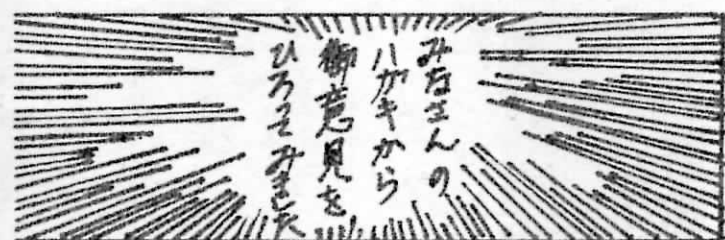 みなさんの
ハガキから
御意見を
ひろってみました